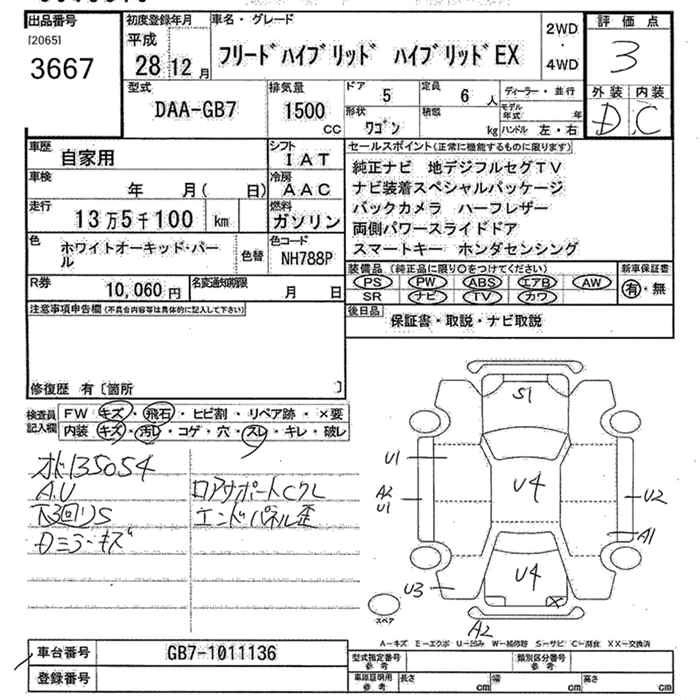 出品番号 初度登録年月 車名・グレード 2WD・4WD 評価点
[2065] 平成
3667 28 12月 フリードハイブリッド ハイブリッドEX 3
型式 排気量 ドア 5 定員 6人 ディーラー・並行 外装 内装
DAA-GB7 1500cc 形状 ワゴン 積載 kg モデル年式 年 D C
ハンドル 左・右
車歴 自家用 シフト IAT セールスポイント(正常に機能するものに限ります)
車検 年 月( 日) 冷房 AAC 純正ナビ 地デジフルセグTV
ナビ装着スペシャルパッケージ
走行 13万5千100 km 燃料 ガソリン バックカメラ ハーフレザー
両側パワースライドドア
色 ホワイトオーキッド・パール 色替 色コード NH788P スマートキー ホンダセンシング
装備品(純正品に限り○をつけてください) 新車保証書
R券 10,060円 名変通知期限 月 日 PS PW ABS エアB AW 有・無
SR ナビ TV カワ
注意事項申告欄(不具合内容等は具体的に記入して下さい) 後日品 保証書・取説・ナビ取説
修復歴 有〔箇所 〕
検査員記入欄 FW キズ・飛石・ヒビ割・リペア跡・×要
内装 キズ・汚レ・コゲ・穴・スレ・キレ・破レ
オド135054
A.U ロアサポートCクレ
下回りS エンドパネル歪
Dミラーキズ
S1
U1 U4
A2 U1 U2
A1
U3 U4
スペア A2
A-キズ E-エクボ U-凹み W-補修跡 S-サビ C-腐食 XX-交換済
車台番号 GB7-1011136 型式指定番号 参考 類別区分番号 参考
登録番号 車庫証明用 参考 長さ cm 幅 cm 高さ cm